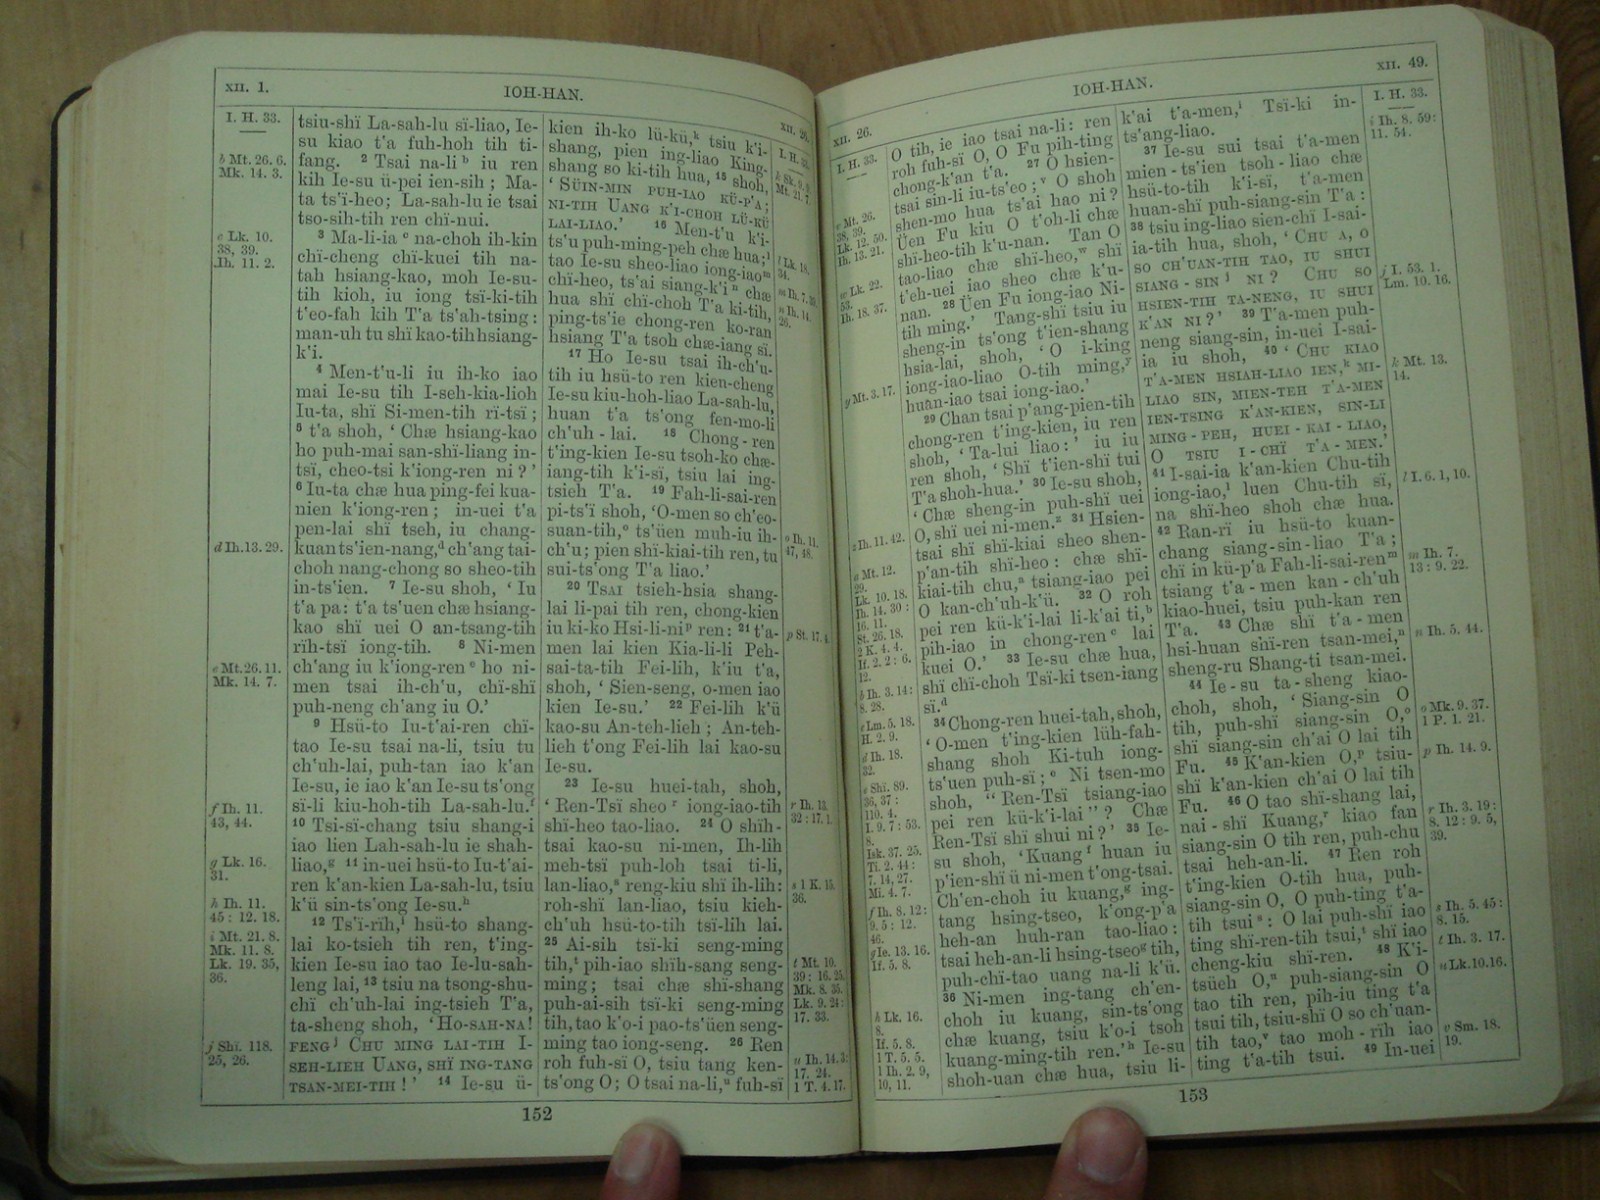 XII. 1.
IOH-HAN.
XII. 26.
I. H. 33.
b Mt. 26. 6.
Mk. 14. 3.
c Lk. 10.
38, 39.
Ih. 11. 2.
d Ih. 13. 29.
e Mt. 26. 11.
Mk. 14. 7.
f Ih. 11.
43, 44.
g Lk. 16.
31.
h Ih. 11.
45 : 12. 18.
i Mt. 21. 8.
Mk. 11. 8.
Lk. 19. 35,
36.
j Shï. 118.
25, 26.
tsiu-shï La-sah-lu sï-liao, Ie-
su kiao t'a fuh-hoh tih ti-
fang. 2 Tsai na-li b iu ren
kih Ie-su ü-pei ien-sih ; Ma-
ta ts'ï-heo; La-sah-lu ie tsai
tso-sih-tih ren chï-nui.
3 Ma-li-ia c na-choh ih-kin
chï-cheng chï-kuei tih na-
tah hsiang-kao, moh Ie-su-
tih kioh, iu iong tsï-ki-tih
t'eo-fah kih T'a ts'ah-tsing :
man-uh tu shï kao-tih hsiang-
k'i.
4 Men-t'u-li iu ih-ko iao
mai Ie-su tih I-seh-kia-lioh
Iu-ta, shï Si-men-tih rï-tsï ;
5 t'a shoh, ‘ Chæ hsiang-kao
ho puh-mai san-shï-liang in-
tsï, cheo-tsi k'iong-ren ni ? ’
6 Iu-ta chæ hua ping-fei kua-
nien k'iong-ren ; in-uei t'a
pen-lai shï tseh, iu chang-
kuan ts'ien-nang,d ch'ang tai-
choh nang-chong so sheo-tih
in-ts'ien. 7 Ie-su shoh, ‘ Iu
t'a pa : t'a ts'uen chæ hsiang-
kao shï uei O an-tsang-tih
rïh-tsï iong-tih. 8 Ni-men
ch'ang iu k'iong-ren e ho ni-
men tsai ih-ch'u, chï-shï
puh-neng ch'ang iu O.’
9 Hsü-to Iu-t'ai-ren chï-
tao Ie-su tsai na-li, tsiu tu
ch'uh-lai, puh-tan iao k'an
Ie-su, ie iao k'an Ie-su ts'ong
sï-li kiu-hoh-tih La-sah-lu.f
10 Tsi-sï-chang tsiu shang-i
iao lien Lah-sah-lu ie shah-
liao,g 11 in-uei hsü-to Iu-t'ai-
ren k'an-kien La-sah-lu, tsiu
k'ü sin-ts'ong Ie-su.h
12 Ts'ï-rïh,i hsü-to shang-
lai ko-tsieh tih ren, t'ing-
kien Ie-su iao tao Ie-lu-sah-
leng lai, 13 tsiu na tsong-shu-
chï ch'uh-lai ing-tsieh T'a,
ta-sheng shoh, ‘ HO-SAH-NA !
FENG j CHU MING LAI-TIH I-
SEH-LIEH UANG, SHÏ ING-TANG
TSAN-MEI-TIH ! ’ 14 Ie-su ü-
kien ih-ko lü-kü,k tsiu k'i-
shang, pien ing-liao King-
shang so ki-tih hua, 15 shoh,
‘ SÜIN-MIN PUH-IAO KÜ-P'A ;
NI-TIH UANG K'I-CHOH LÜ-KÜ
LAI-LIAO.’ 16 Men-t'u k'i-
ts'u puh-ming-peh chæ hua ;l
tao Ie-su sheo-liao iong-iao m
chï-heo, ts'ai siang-k'i n chæ
hua shï chï-choh T'a ki-tih,
ping-ts'ie chong-ren ko-ran
hsiang T'a tsoh chæ-iang sï.
17 Ho Ie-su tsai ih-ch'u-
tih iu hsü-to ren kien-cheng
Ie-su kiu-hoh-liao La-sah-lu,
huan t'a ts'ong fen-mo-li
ch'uh - lai. 18 Chong - ren
t'ing-kien Ie-su tsoh-ko chæ-
iang-tih k'i-sï, tsiu lai ing-
tsieh T'a. 19 Fah-li-sai-ren
pi-ts'ï shoh, ‘O-men so ch'eo-
suan-tih,o ts'üen muh-iu ih-
ch'u ; pien shï-kiai-tih ren, tu
sui-ts'ong T'a liao.’
20 TSAI tsieh-hsia shang-
lai li-pai tih ren, chong-kien
iu ki-ko Hsi-li-ni p ren : 21 t'a-
men lai kien Kia-li-li Peh-
sai-ta-tih Fei-lih, k'iu t'a,
shoh, ‘ Sien-seng, o-men iao
kien Ie-su.’ 22 Fei-lih k'ü
kao-su An-teh-lieh ; An-teh-
lieh t'ong Fei-lih lai kao-su
Ie-su.
23 Ie-su huei-tah, shoh,
‘ Ren-Tsï sheo r iong-iao-tih
shï-heo tao-liao. 24 O shïh-
tsai kao-su ni-men, Ih-lih
meh-tsï puh-loh tsai ti-li,
lan-liao,s reng-kiu shï ih-lih :
roh-shï lan-liao, tsiu kieh-
ch'uh hsü-to-tih tsï-lih lai.
25 Ai-sih tsï-ki seng-ming
tih,t pih-iao shïh-sang seng-
ming ; tsai chæ shï-shang
puh-ai-sih tsï-ki seng-ming
tih, tao k'o-i pao-ts'üen seng-
ming tao iong-seng. 26 Ren
roh fuh-sï O, tsiu tang ken-
ts'ong O; O tsai na-li,u fuh-sï
I. H. 33.
k Sk. 9. 9.
Mt. 21. 7.
l Lk. 18.
34.
m Ih. 7. 39.
n Ih. 14.
26.
o Ih. 11.
47, 48.
p St. 17. 4.
r Ih. 13.
32 : 17. 1.
s 1 K. 15.
36.
t Mt. 10.
39 : 16. 25.
Mk. 8. 35.
Lk. 9. 24 :
17. 33.
u Ih. 14. 3 :
17. 24.
1 T. 4. 17.
152
XII. 26.
IOH-HAN.
XII. 49.
I. H. 33.
v Mt. 26.
38, 39.
Lk. 12. 50.
Ih. 13. 21.
w Lk. 22.
53.
Ih. 18. 37.
y Mt. 3. 17.
z Ih. 11. 42.
a Mt. 12.
29.
Lk. 10. 18.
Ih. 14. 30 :
16. 11.
St. 26. 18.
2 K. 4. 4.
If. 2. 2 : 6.
12.
b Ih. 3. 14 :
8. 28.
c Lm. 5. 18.
H. 2. 9.
d Ih. 18.
32.
e Shï. 89.
36, 37 :
110. 4.
I. 9. 7 : 53.
8.
Isk. 37. 25.
Ti. 2. 44 :
7. 14, 27.
Mi. 4. 7.
f Ih. 8. 12 :
9. 5 : 12.
46.
g Ie. 13. 16.
If. 5. 8.
h Lk. 16.
8.
If. 5. 8.
1 T. 5. 5.
1 Ih. 2. 9,
10, 11.
O tih, ie iao tsai na-li : ren
roh fuh-sï O, O Fu pih-ting
chong-k'an t'a. 27 O hsien-
tsai sin-li iu-ts'eo ;v O shoh
shen-mo hua ts'ai hao ni ?
Üen Fu kiu O t'oh-li chæ
shï-heo-tih k'u-nan. Tan O
tao-liao chæ shï-heo,w shï
t'eh-uei iao sheo chæ k'u-
nan. 28 Üen Fu iong-iao Ni-
tih ming.’ Tang-shï tsiu iu
sheng-in ts'ong t'ien-shang
hsia-lai, shoh, ‘ O i-king
iong-iao-liao O-tih ming,y
huan-iao tsai iong-iao.’
29 Chan tsai p'ang-pien-tih
chong-ren t'ing-kien, iu ren
shoh, ‘ Ta-lui liao : ’ iu iu
ren shoh, ‘ Shï t'ien-shï tui
T'a shoh-hua.’ 30 Ie-su shoh,
‘ Chæ sheng-in puh-shï uei
O, shï uei ni-men.z 31 Hsien-
tsai shï shï-kiai sheo shen-
p'an-tih shï-heo : chæ shï-
kiai-tih chu,a tsiang-iao pei
O kan-ch'uh-k'ü. 32 O roh
pei ren kü-k'i-lai li-k'ai ti,b
pih-iao in chong-ren c lai
kuei O.’ 33 Ie-su chæ hua,
shï chï-choh Tsï-ki tsen-iang
sï.d
34 Chong-ren huei-tah, shoh,
‘ O-men t'ing-kien lüh-fah-
shang shoh Ki-tuh iong-
ts'uen puh-sï ; e Ni tsen-mo
shoh, “ Ren-Tsï tsiang-iao
pei ren kü-k'i-lai ” ? Chæ
Ren-Tsï shï shui ni ? ’ 35 Ie-
su shoh, ‘ Kuang f huan iu
p'ien-shï ü ni-men t'ong-tsai.
Ch'en-choh iu kuang,g ing-
tang hsing-tseo, k'ong-p'a
heh-an huh-ran tao-liao :
tsai heh-an-li hsing-tseo g tih,
puh-chï-tao uang na-li k'ü.
36 Ni-men ing-tang ch'en-
choh iu kuang, sin-ts'ong
chæ kuang, tsiu k'o-i tsoh
kuang-ming-tih ren.’h Ie-su
shoh-uan chæ hua, tsiu li-
k'ai t'a-men,i Tsï-ki in-
ts'ang-liao.
37 Ie-su sui tsai t'a-men
mien - ts'ien tsoh - liao chæ
hsü-to-tih k'i-sï, t'a-men
huan-shï puh-siang-sin T'a :
38 tsiu ing-liao sien-chï I-sai-
ia-tih hua, shoh, ‘ CHU A, O
SO CH'UAN-TIH TAO, IU SHUI
SIANG - SIN j NI ? CHU SO
HSIEN-TIH TA-NENG, IU SHUI
K'AN NI ? ’ 39 T'a-men puh-
neng siang-sin, in-uei I-sai-
ia iu shoh, 40 ‘ CHU KIAO
T'A-MEN HSIAH-LIAO IEN,k MI-
LIAO SIN, MIEN-TEH T'A-MEN
IEN-TSING K'AN-KIEN, SIN-LI
MING - PEH, HUEI - KAI - LIAO,
O TSIU I - CHÏ T'A - MEN.’
41 I-sai-ia k'an-kien Chu-tih
iong-iao,l luen Chu-tih sï,
na shï-heo shoh chæ hua.
42 Ran-rï iu hsü-to kuan-
chang siang-sin-liao T'a ;
chï in kü-p'a Fah-li-sai-ren m
tsiang t'a - men kan - ch'uh
kiao-huei, tsiu puh-kan ren
T'a. 43 Chæ shï t'a - men
hsi-huan shï-ren tsan-mei,n
sheng-ru Shang-ti tsan-mei.
44 Ie - su ta - sheng kiao-
choh, shoh, ‘ Siang-sin O
tih, puh-shï siang-sin O,o
shï siang-sin ch'ai O lai tih
Fu. 45 K'an-kien O,p tsiu-
shï k'an-kien ch'ai O lai tih
Fu. 46 O tao shï-shang lai,
nai - shï Kuang,r kiao fan
siang-sin O tih ren, puh-chu
tsai heh-an-li. 47 Ren roh
t'ing-kien O-tih hua, puh-
siang-sin O, O puh-ting t'a-
tih tsui s : O lai puh-shï iao
ting shï-ren-tih tsui,t shï iao
cheng-kiu shï-ren. 48 K'i-
tsüeh O,u puh-siang-sin O
tao tih ren, pih-iu ting t'a
tsui tih, tsiu-shï O so ch'uan-
tih tao,v tao moh - rïh iao
ting t'a-tih tsui. 49 In-uei
I. H. 33.
i Ih. 8. 59 :
11. 54.
j I. 53. 1.
Lm. 10. 16.
k Mt. 13.
14.
l I. 6. 1, 10.
m Ih. 7.
13 : 9. 22.
n Ih. 5. 44.
o Mk. 9. 37.
1 P. 1. 21.
p Ih. 14. 9.
r Ih. 3. 19 :
8. 12 : 9. 5,
39.
s Ih. 5. 45 :
8. 15.
t Ih. 3. 17.
u Lk. 10. 16.
v Sm. 18.
19.
153